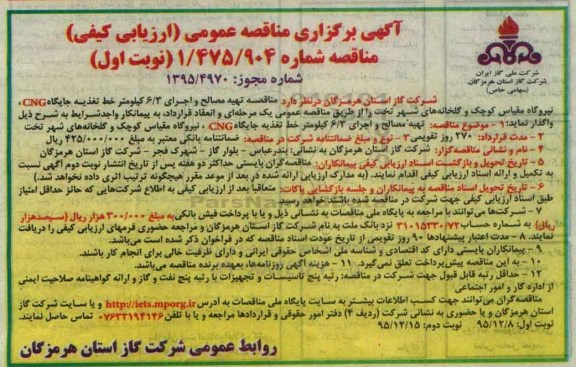 آگهی برگزاری مناقصه عمومی (ارزیابی کیفی)
مناقصه شماره ۱/۴۷۵/۹۰۴ (نوبت اول)
شماره مجوز: ۱۳۹۵/۴۹۷۰
شرکت ملی گاز ایران
شرکت گاز استان هرمزگان
(سهامی خاص)
شرکت گاز استان هرمزگان درنظر دارد مناقصه تهیه مصالح و اجرای ۶/۳ کیلومتر خط تغذیه جایگاه CNG،
نیروگاه مقیاس کوچک و گلخانه‌های شهر تخت را از طریق مناقصه عمومی یک مرحله‌ای و انعقاد قرارداد، به پیمانکار واجدشرایط به شرح ذیل
واگذار نماید: ۱- موضوع مناقصه: تهیه مصالح و اجرای ۶/۳ کیلومتر خط تغذیه جایگاه CNG ، نیروگاه مقیاس کوچک و گلخانه‌های شهر تخت
۲- مدت قرارداد: ۲۷۰ روز تقویمی ۳- نوع و مبلغ ضمانتنامه شرکت در مناقصه: ضمانتنامه بانکی معتبر به مبلغ ۴۲۵/۰۰۰/۰۰۰ ریال
۴- نام و نشانی مناقصه‌گزار: شرکت گاز استان هرمزگان به نشانی: بندرعباس - بلوار گاز - شهرک فجر - شرکت گاز استان هرمزگان
۵- تاریخ تحویل و بازگشت اسناد ارزیابی کیفی پیمانکاران: مناقصه‌گران بایستی حداکثر دو هفته پس از تاریخ انتشار نوبت دوم آگهی نسبت
به تکمیل و ارائه اسناد ارزیابی کیفی اقدام نمایند. (به مدارک ارزیابی ارائه شده در بعد از موعد مقرر هیچگونه ترتیب اثری داده نخواهد شد.)
۶- تاریخ تحویل اسناد مناقصه به پیمانکاران و جلسه بازگشایی پاکات: متعاقبا بعد از ارزیابی کیفی به اطلاع شرکت‌هایی که حائز حداقل امتیاز
طبق اسناد ارزیابی کیفی جهت شرکت در مناقصه شده باشند خواهد رسید.
۷- شرکت‌ها می‌توانند با مراجعه به پایگاه ملی مناقصات به نشانی ذیل و یا با پرداخت فیش بانکی به مبلغ ۳۰۰/۰۰۰ هزار ریال (سیصدهزار
ریال) به شماره حساب ۳۱۰۱۵۳۳۰/۷۲ نزد بانک ملت به نام شرکت گاز استان هرمزگان و مراجعه حضوری فرمهای ارزیابی کیفی را دریافت
نمایند. ۸- مدت اعتبار پیشنهادها ۹۰ روز تقویمی از تاریخ عودت اسناد مناقصه که در فراخوان ذکر شده است می‌باشد.
۹- پیمانکاران بایستی دارای کد اقتصادی و شناسه ملی اشخاص حقوقی ایرانی و دارای ظرفیت خالی برای انجام کار باشند.
۱۰- به این مناقصه پیش‌پرداخت تعلق نمی‌گیرد. ۱۱- هزینه آگهی روزنامه‌ها، بعهده برنده مناقصه می‌باشد.
۱۲- حداقل رتبه قابل قبول جهت شرکت در مناقصه: رتبه پنج تاسیسات و تجهیزات یا رتبه پنج نفت و گاز و ارائه گواهینامه صلاحیت ایمنی
از اداره کار و امور اجتماعی
مناقصه‌گران می‌توانند جهت کسب اطلاعات بیشتر به سایت پایگاه ملی مناقصات به آدرس http://iets.mporg.ir و یا سایت شرکت گاز
استان هرمزگان و یا حضوری به نشانی شرکت (ردیف ۴) دفتر امور حقوقی و قراردادها مراجعه و یا با تلفن ۰۷۶۳۲۱۹۴۱۴۶ تماس حاصل نمایند.
نوبت اول: ۹۵/۱۲/۸ نوبت دوم: ۹۵/۱۲/۱۵
روابط عمومی شرکت گاز استان هرمزگان